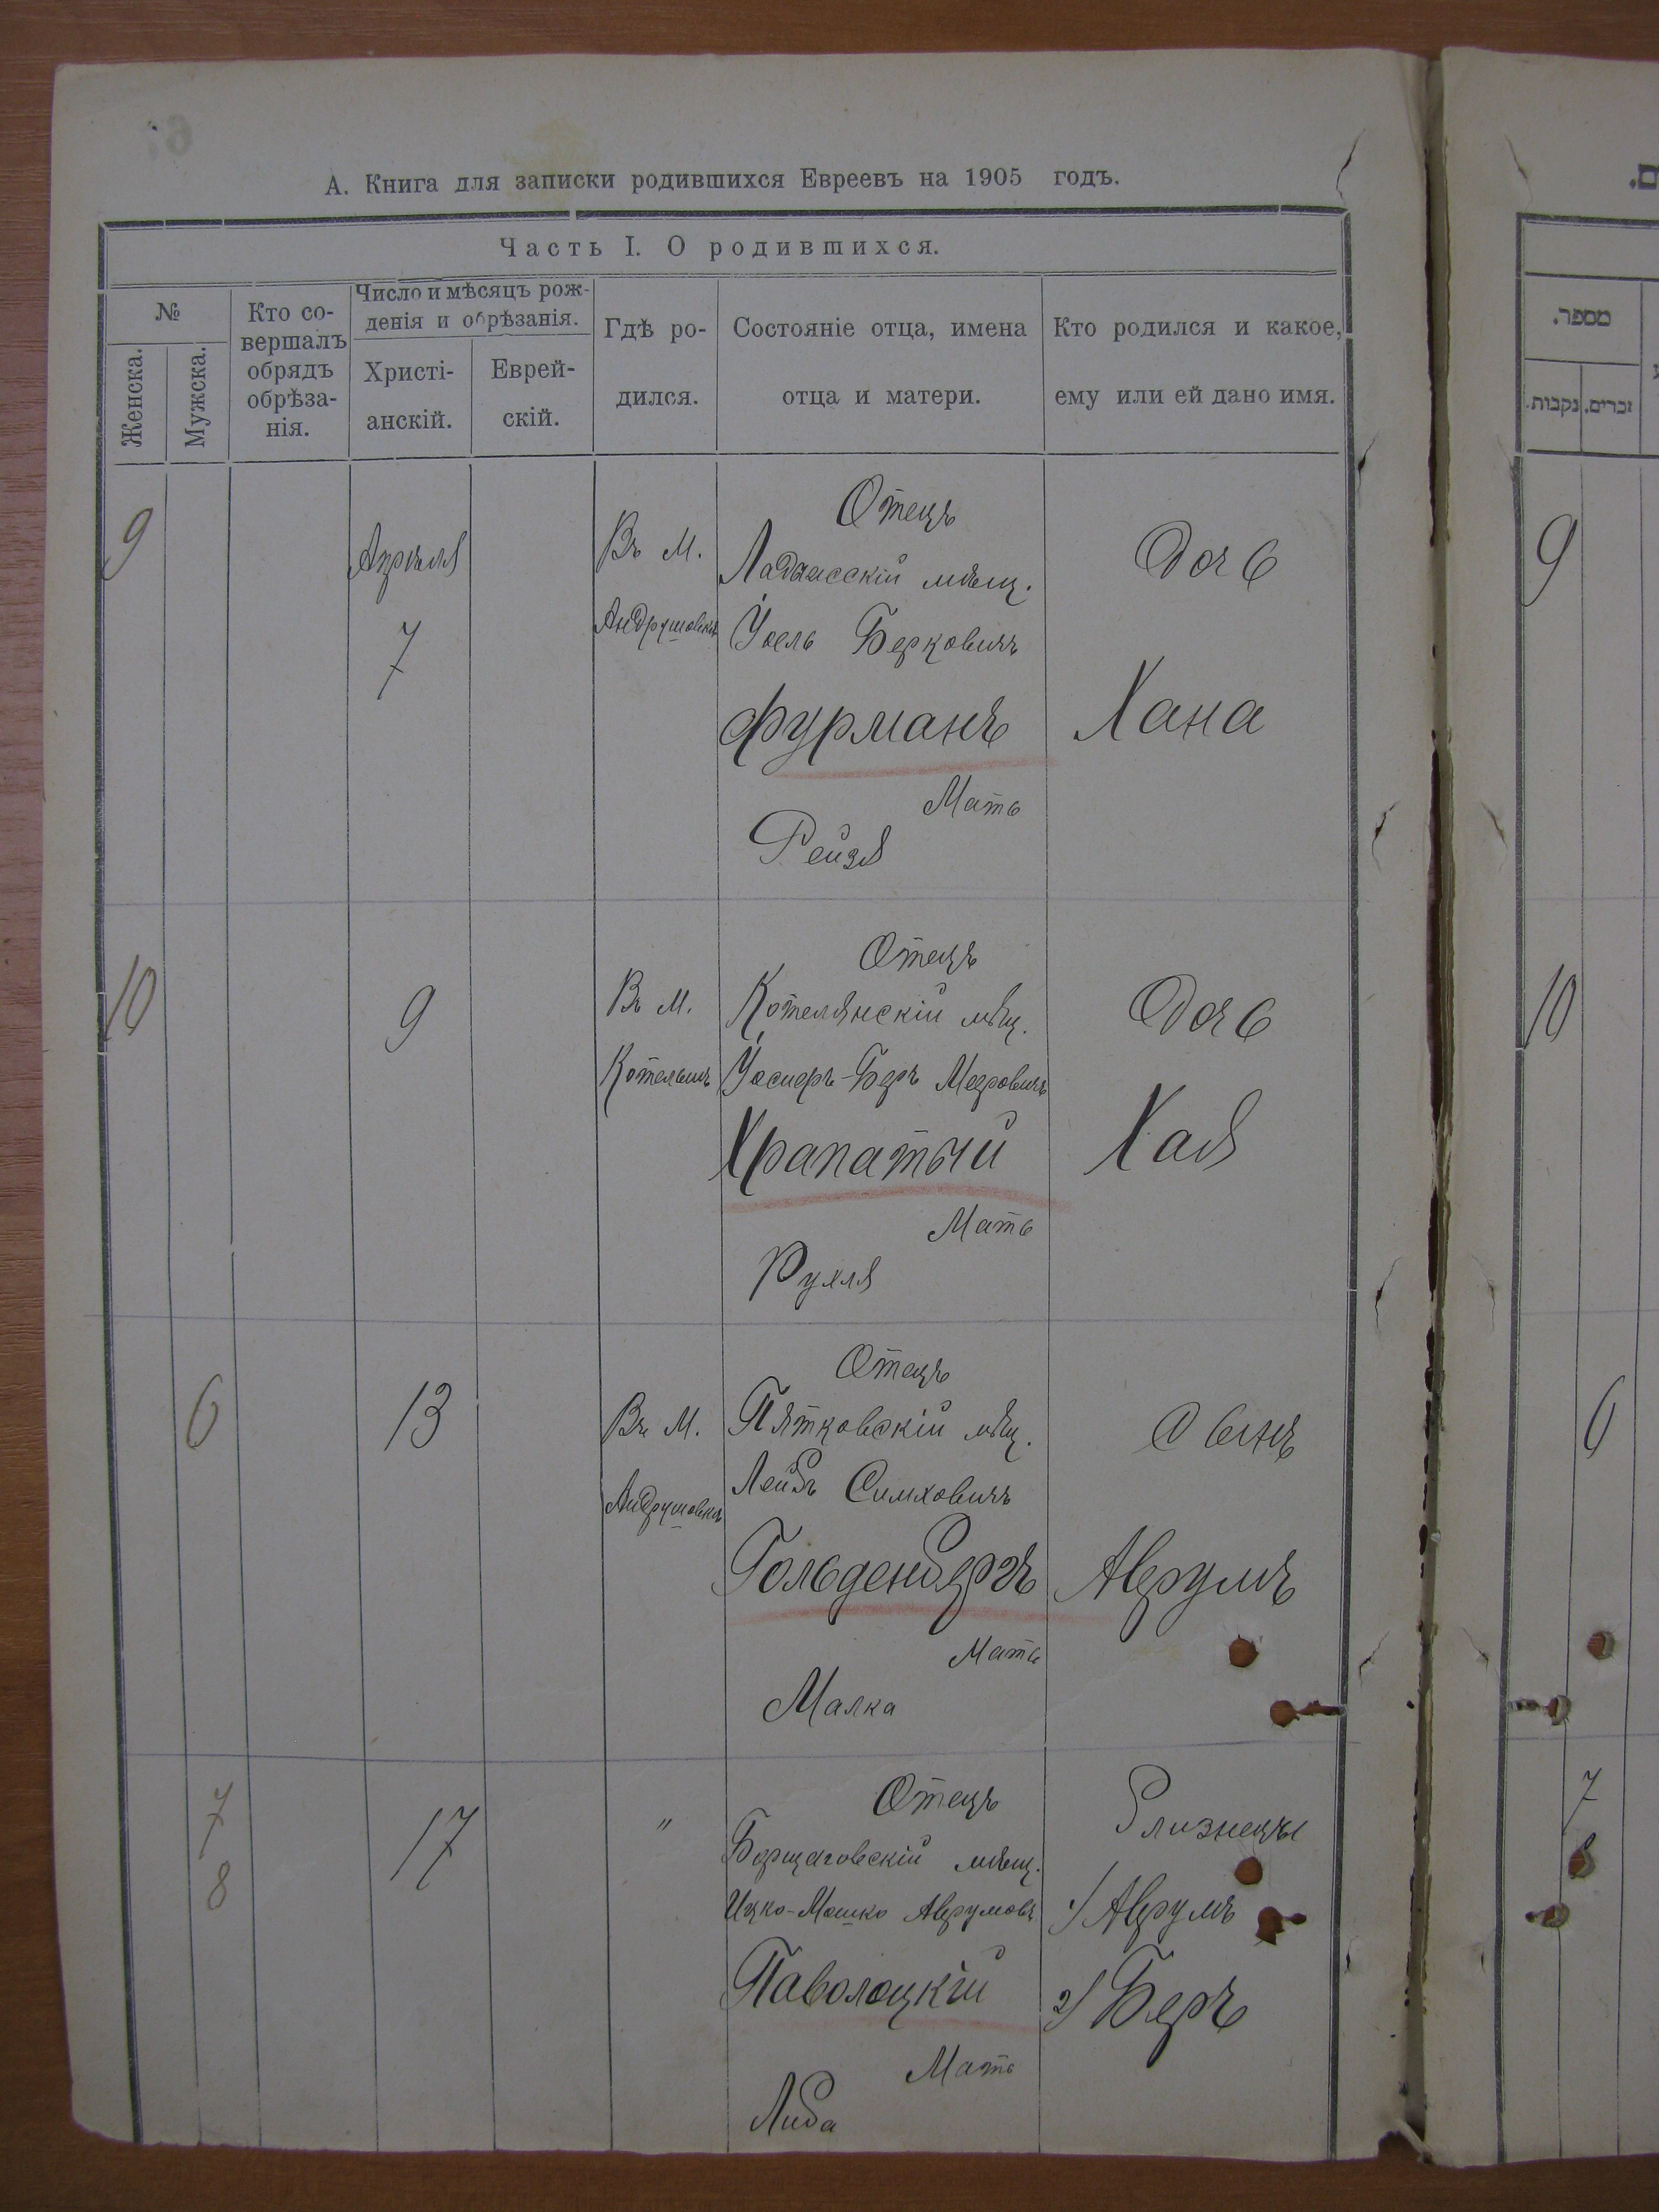 А. Книга для записки родившихся Евреевъ на 1905 годъ.
Часть I. О родившихся.
№
Женска.
Мужска.
Кто со-
вершалъ
обрядъ
обрѣза-
нія.
Число и мѣсяцъ рож-
денія и обрѣзанія.
Христі-
анскій.
Еврей-
скій.
Гдѣ ро-
дился.
Состояніе отца, имена
отца и матери.
Кто родился и какое,
ему или ей дано имя.
9
Апрѣля
7
Въ М.
Андрушовкѣ
Отецъ
мѣщ.
Іоель Берковичъ
Фурманъ
Мать
Рейзя
Дочь
Хана
10
9
Въ М.
Котельнѣ
Отецъ
Котелянскій мѣщ.
Іосифъ-Беръ Мееровичъ
Храпатый
Мать
Рухля
Дочь
Хая
6
13
Въ М.
Андрушовкѣ
Отецъ
Пятковскій мѣщ.
Лейбъ Симховичъ
Гольденбергъ
Мать
Малка
Сынъ
Аврумъ
7
8
17
"
Отецъ
Борщаговскій мѣщ.
Ицко-Мошко Аврумовъ
Паволоцкій
Мать
Либа
Близнецы
1) Аврумъ
2) Беръ
מספר.
נקבות.
זכרים.
9
10
6
7
8